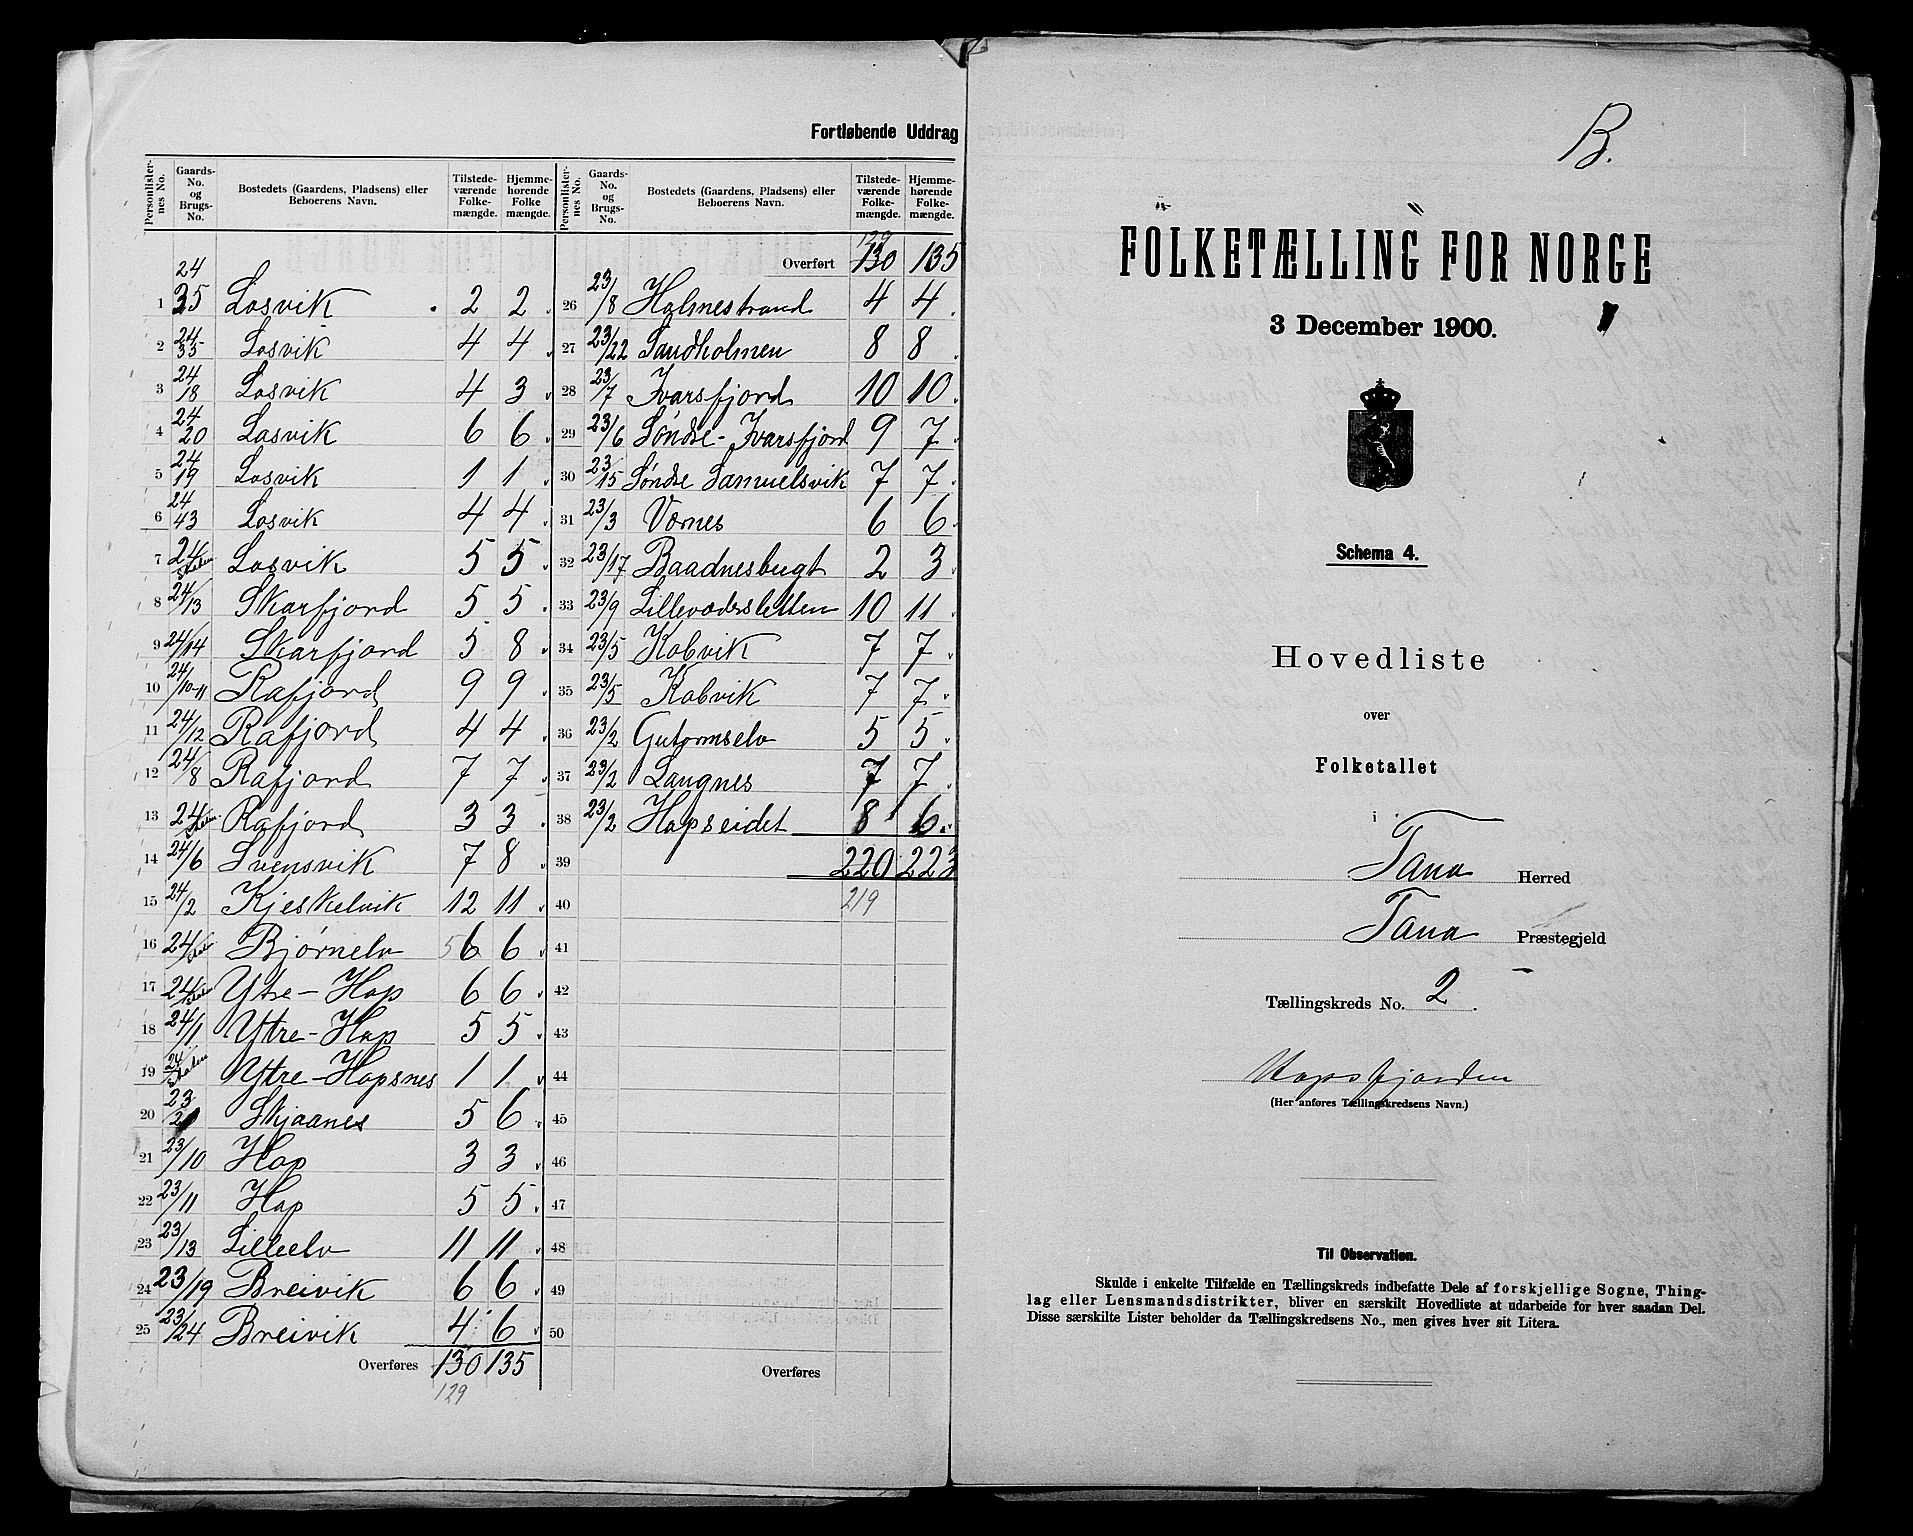 Fortløbende Uddrag
Personlister-nes No. Gaards-No. og Brugs-No. Bostedets (Gaardens, Pladsens) eller Beboerens Navn. Tilstede-værende Folke-mængde. Hjemme-hørende Folke mængde. Personlister-nes No. Gaards-No. og Brugs-No. Bostedets (Gaardens, Pladsens) eller Beboerens Navn. Tilstede-værende Folke-mængde. Hjemme-hørende Folke-mængde.
129
Overført 130 135
1 24/35 Losvik 2 2
2 24/35 Losvik 4 4
3 24/18 Losvik 4 3
4 24/20 Losvik 6 6
5 24/19 Losvik 1 1
6 24/43 Losvik 4 4
7 24 Losvik 5 5
8 24/13 Skarfjord 5 5
9 24/14 Skarfjord 5 8
10 24/10-11 Rafjord 9 9
11 24/12 Rafjord 4 4
12 24/8 Rafjord 7 7
13 24 Rafjord 3 3
14 24/6 Svensvik 7 8
15 24/2 Kjeskelvik 12 11
16 24 Bjørnelv 5 6 6
17 24 Ytre-Hop 6 6
18 24/1 Ytre-Hop 5 5
19 24 Staten Ytre-Hopsnes 1 1
20 23/2 Skjaanes 5 6
21 23/10 Hop 3 3
22 23/11 Hop 5 5
23 23/13 Lilleelv 11 11
24 23/19 Breivik 6 6
25 23/24 Breivik 4 6
Overføres 130 135
129
26 23/8 Holmestrand 4 4
27 23/22 Sandholmen 8 8
28 23/7 Ivarsfjord 10 10
29 23/6 Søndre-Ivarsfjord 9 7
30 23/15 Søndre Samuelsvik 7 7
31 23/3 Vornes 6 6
32 23/17 Baadnesbugt 2 3
33 23/9 Lillevoderslетten 10 11
34 23/5 Kobvik 7 7
35 23/5 Kobvik 7 7
36 23/2 Gutormselv 5 5
37 23/2 Langnes 7 7
38 23/2 Hopseidet 8 6
39 220 223
40 219
41
42
43
44
45
46
47
48
49
50
Overføres
B.
FOLKETÆLLING FOR NORGE
3 December 1900.
Schema 4.
Hovedliste
over
Folketallet
i
Tana Herred
Tana Præstegjeld
Tællingskreds No. 2.
Hopsfjorden
(Her anføres Tællingskredsens Navn.)
Til Observation.
Skulde i enkelte Tilfælde en Tællingskreds indbefatte Dele af forskjellige Sogne, Thing-
lag eller Lensmandsdistrikter, bliver en særskilt Hovedliste at udarbeide for hver saadan Del.
Disse særskilte Lister beholder da Tællingskredsens No., men gives hver sit Litera.